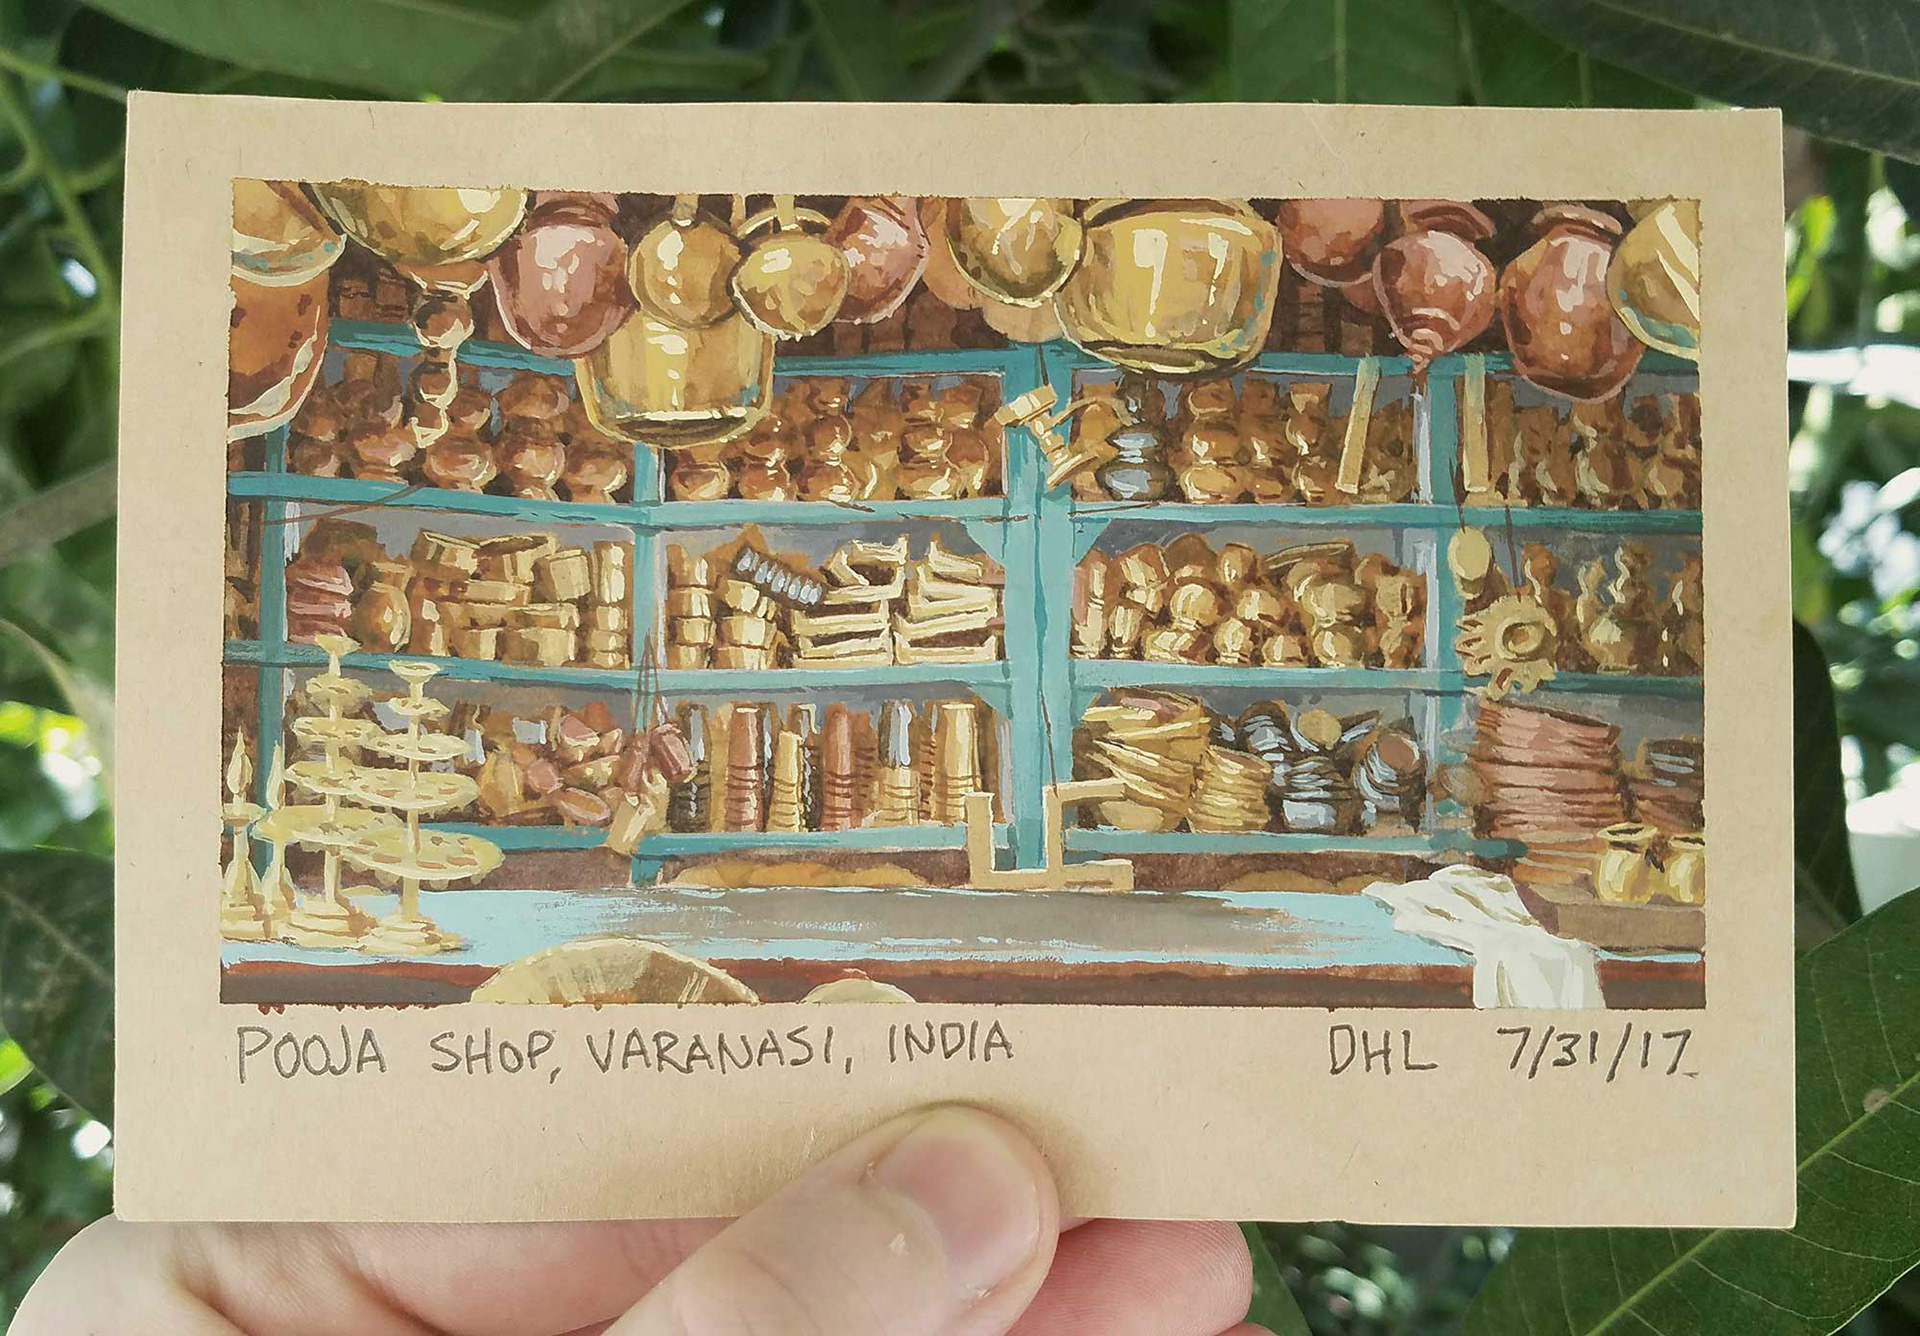 POOJA SHOP, VARANASI, INDIA DHL 7/31/17